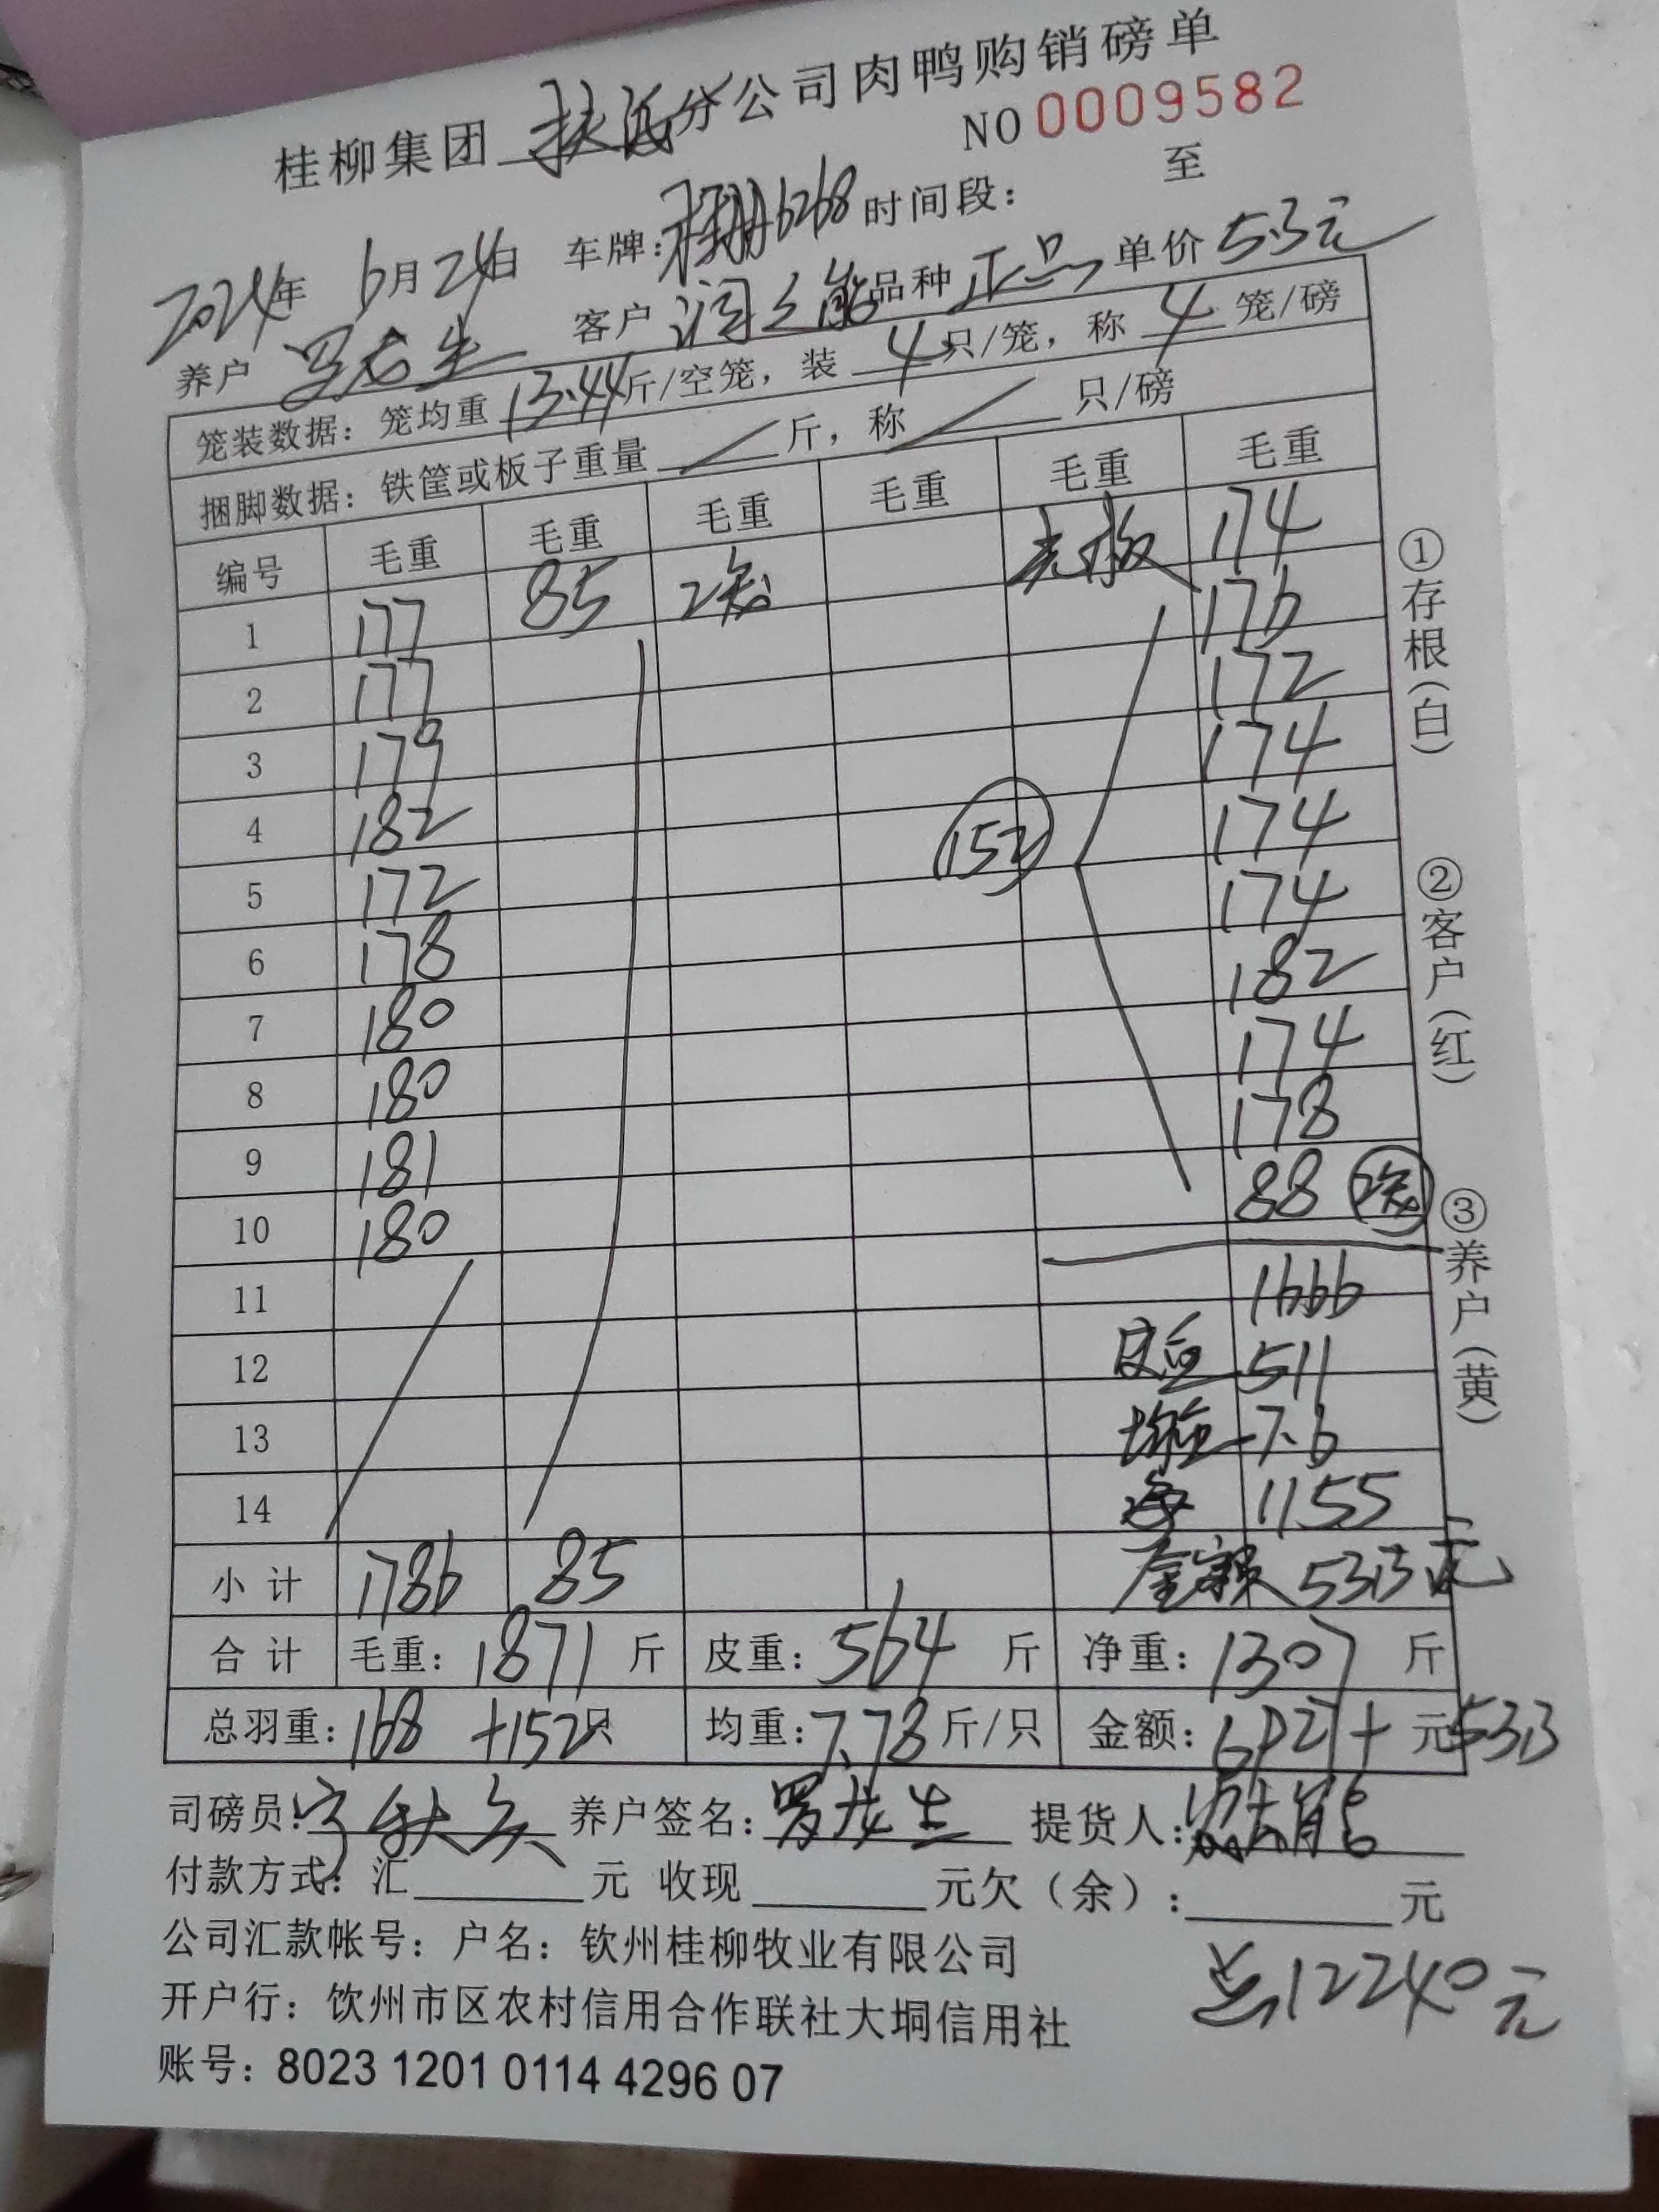 桂柳集团 分公司肉鸭购销磅单
NO 0009582
2024年 6月24日 车牌: 6268 时间段: 至
养户 罗龙生 客户 品种 正品 单价 5.3元
笼装数据: 笼均重 13.44斤/空笼, 装 4只/笼, 称 4 笼/磅
捆脚数据: 铁筐或板子重量 / 斤, 称 / 只/磅
编号 毛重 毛重 毛重 毛重 毛重 毛重
1 177 85 2笼 174
2 177 176
3 179 172
4 182 174
5 172 152 174
6 178 174
7 180 182
8 180 174
9 181 178
10 180 88 2笼
11 1666
12 皮重 511
13 均重 7.6
14 净 1155
小计 1786 85 金额 5313元
合计 毛重: 1871 斤 皮重: 564 斤 净重: 1307 斤
总羽重: 168 +152只 均重: 7.78 斤/只 金额: 6927+ 元5313
司磅员: 养户签名: 罗龙生 提货人:
付款方式: 汇 元 收现 元欠(余): 元
公司汇款帐号: 户名: 钦州桂柳牧业有限公司
总12240元
开户行: 饮州市区农村信用合作联社大垌信用社
账号: 8023 1201 0114 4296 07
①存根(白)
②客户(红)
③养户(黄)